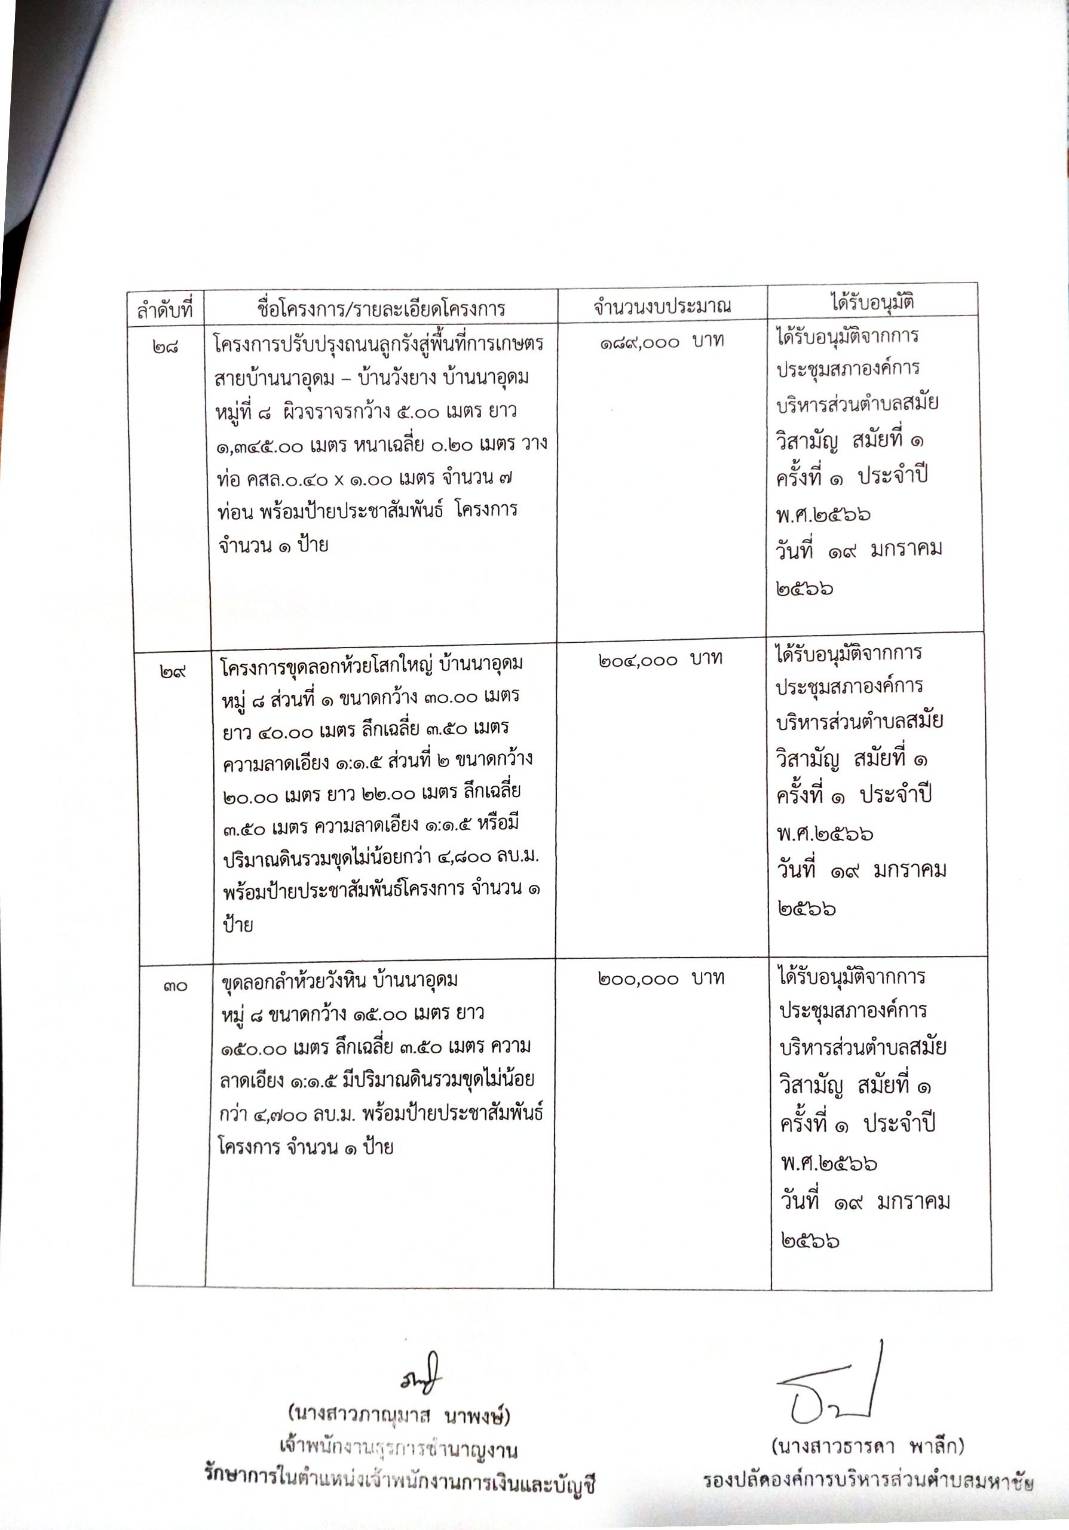 ลำดับที่ ชื่อโครงการ/รายละเอียดโครงการ จำนวนงบประมาณ ได้รับอนุมัติ
๒๘
โครงการปรับปรุงถนนลูกรังสู่พื้นที่การเกษตร
สายบ้านนาอุดม – บ้านวังยาง บ้านนาอุดม
หมู่ที่ ๘ ผิวจราจรกว้าง ๕.๐๐ เมตร ยาว
๑,๓๔๕.๐๐ เมตร หนาเฉลี่ย ๐.๒๐ เมตร วาง
ท่อ คสล.๐.๔๐ x ๑.๐๐ เมตร จำนวน ๗
ท่อน พร้อมป้ายประชาสัมพันธ์ โครงการ
จำนวน ๑ ป้าย
๑๘๙,๐๐๐ บาท
ได้รับอนุมัติจากการ
ประชุมสภาองค์การ
บริหารส่วนตำบลสมัย
วิสามัญ สมัยที่ ๑
ครั้งที่ ๑ ประจำปี
พ.ศ.๒๕๖๖
วันที่ ๑๙ มกราคม
๒๕๖๖
๒๙
โครงการขุดลอกห้วยโสกใหญ่ บ้านนาอุดม
หมู่ ๘ ส่วนที่ ๑ ขนาดกว้าง ๓๐.๐๐ เมตร
ยาว ๔๐.๐๐ เมตร ลึกเฉลี่ย ๓.๕๐ เมตร
ความลาดเอียง ๑:๑.๕ ส่วนที่ ๒ ขนาดกว้าง
๒๐.๐๐ เมตร ยาว ๒๒.๐๐ เมตร ลึกเฉลี่ย
๓.๕๐ เมตร ความลาดเอียง ๑:๑.๕ หรือมี
ปริมาณดินรวมขุดไม่น้อยกว่า ๔,๘๐๐ ลบ.ม.
พร้อมป้ายประชาสัมพันธ์โครงการ จำนวน ๑
ป้าย
๒๐๔,๐๐๐ บาท
ได้รับอนุมัติจากการ
ประชุมสภาองค์การ
บริหารส่วนตำบลสมัย
วิสามัญ สมัยที่ ๑
ครั้งที่ ๑ ประจำปี
พ.ศ.๒๕๖๖
วันที่ ๑๙ มกราคม
๒๕๖๖
๓๐
ขุดลอกลำห้วยวังหิน บ้านนาอุดม
หมู่ ๘ ขนาดกว้าง ๑๕.๐๐ เมตร ยาว
๑๕๐.๐๐ เมตร ลึกเฉลี่ย ๓.๕๐ เมตร ความ
ลาดเอียง ๑:๑.๕ มีปริมาณดินรวมขุดไม่น้อย
กว่า ๔,๗๐๐ ลบ.ม. พร้อมป้ายประชาสัมพันธ์
โครงการ จำนวน ๑ ป้าย
๒๐๐,๐๐๐ บาท
ได้รับอนุมัติจากการ
ประชุมสภาองค์การ
บริหารส่วนตำบลสมัย
วิสามัญ สมัยที่ ๑
ครั้งที่ ๑ ประจำปี
พ.ศ.๒๕๖๖
วันที่ ๑๙ มกราคม
๒๕๖๖
(นางสาวภาณุมาส นาพงษ์)
เจ้าพนักงานธุรการชำนาญงาน
รักษาการในตำแหน่งเจ้าพนักงานการเงินและบัญชี
(นางสาวธารดา พาลึก)
รองปลัดองค์การบริหารส่วนตำบสมหาชัย